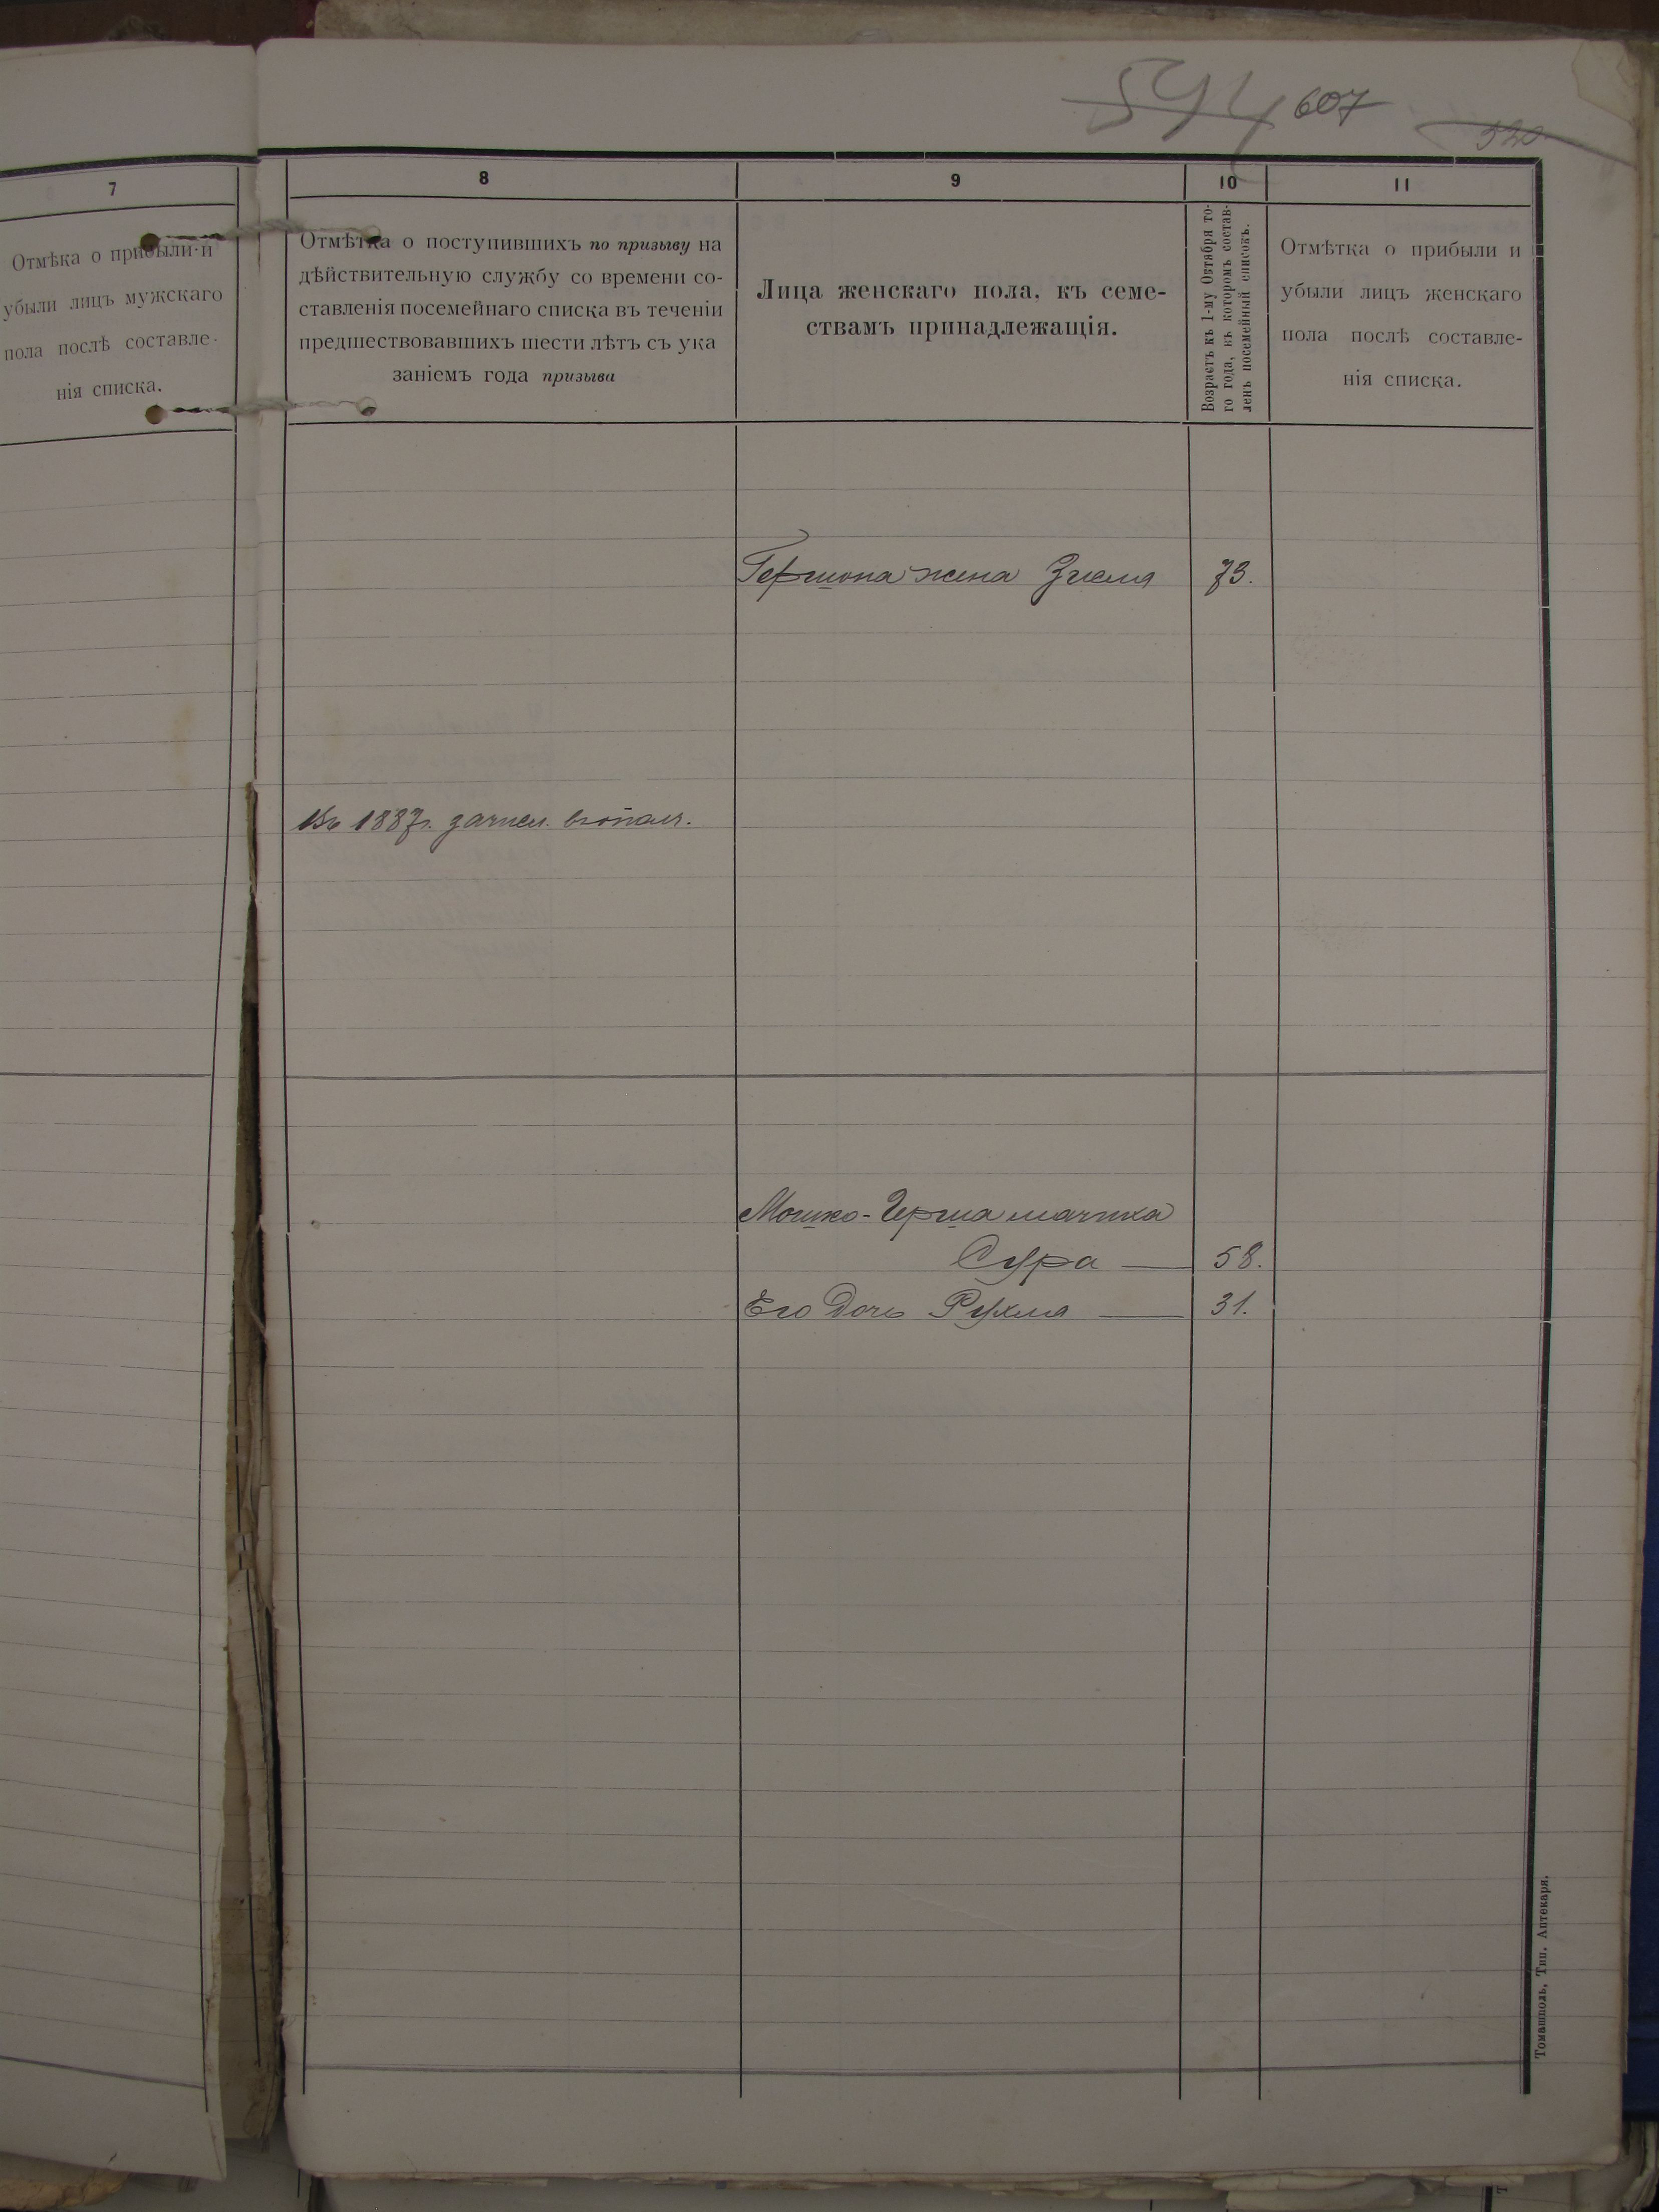 594 607
520
7
Отмѣка о прибыли и
убыли лицъ мужскаго
пола послѣ составле-
нія списка.
8
Отмѣтка о поступившихъ по призыву на
дѣйствительную службу со времени со-
ставленія посемейнаго списка въ теченіи
предшествовавшихъ шести лѣтъ съ ука
заніемъ года призыва
9
Лица женскаго пола, къ семе-
ствамъ принадлежащія.
10
Возрастъ къ 1-му Октября то-
го года, въ которомъ состав-
ленъ посемейный списокъ.
11
Отмѣтка о прибыли и
убыли лицъ женскаго
пола послѣ составле-
нія списка.
Гершона жена 73.
Въ 1887г. зачисл. въ ополч.
Мошко-Герша мачиха
Сура 58.
Его дочь Рухля 31.
Томашполь, Тип. Аптекаря.